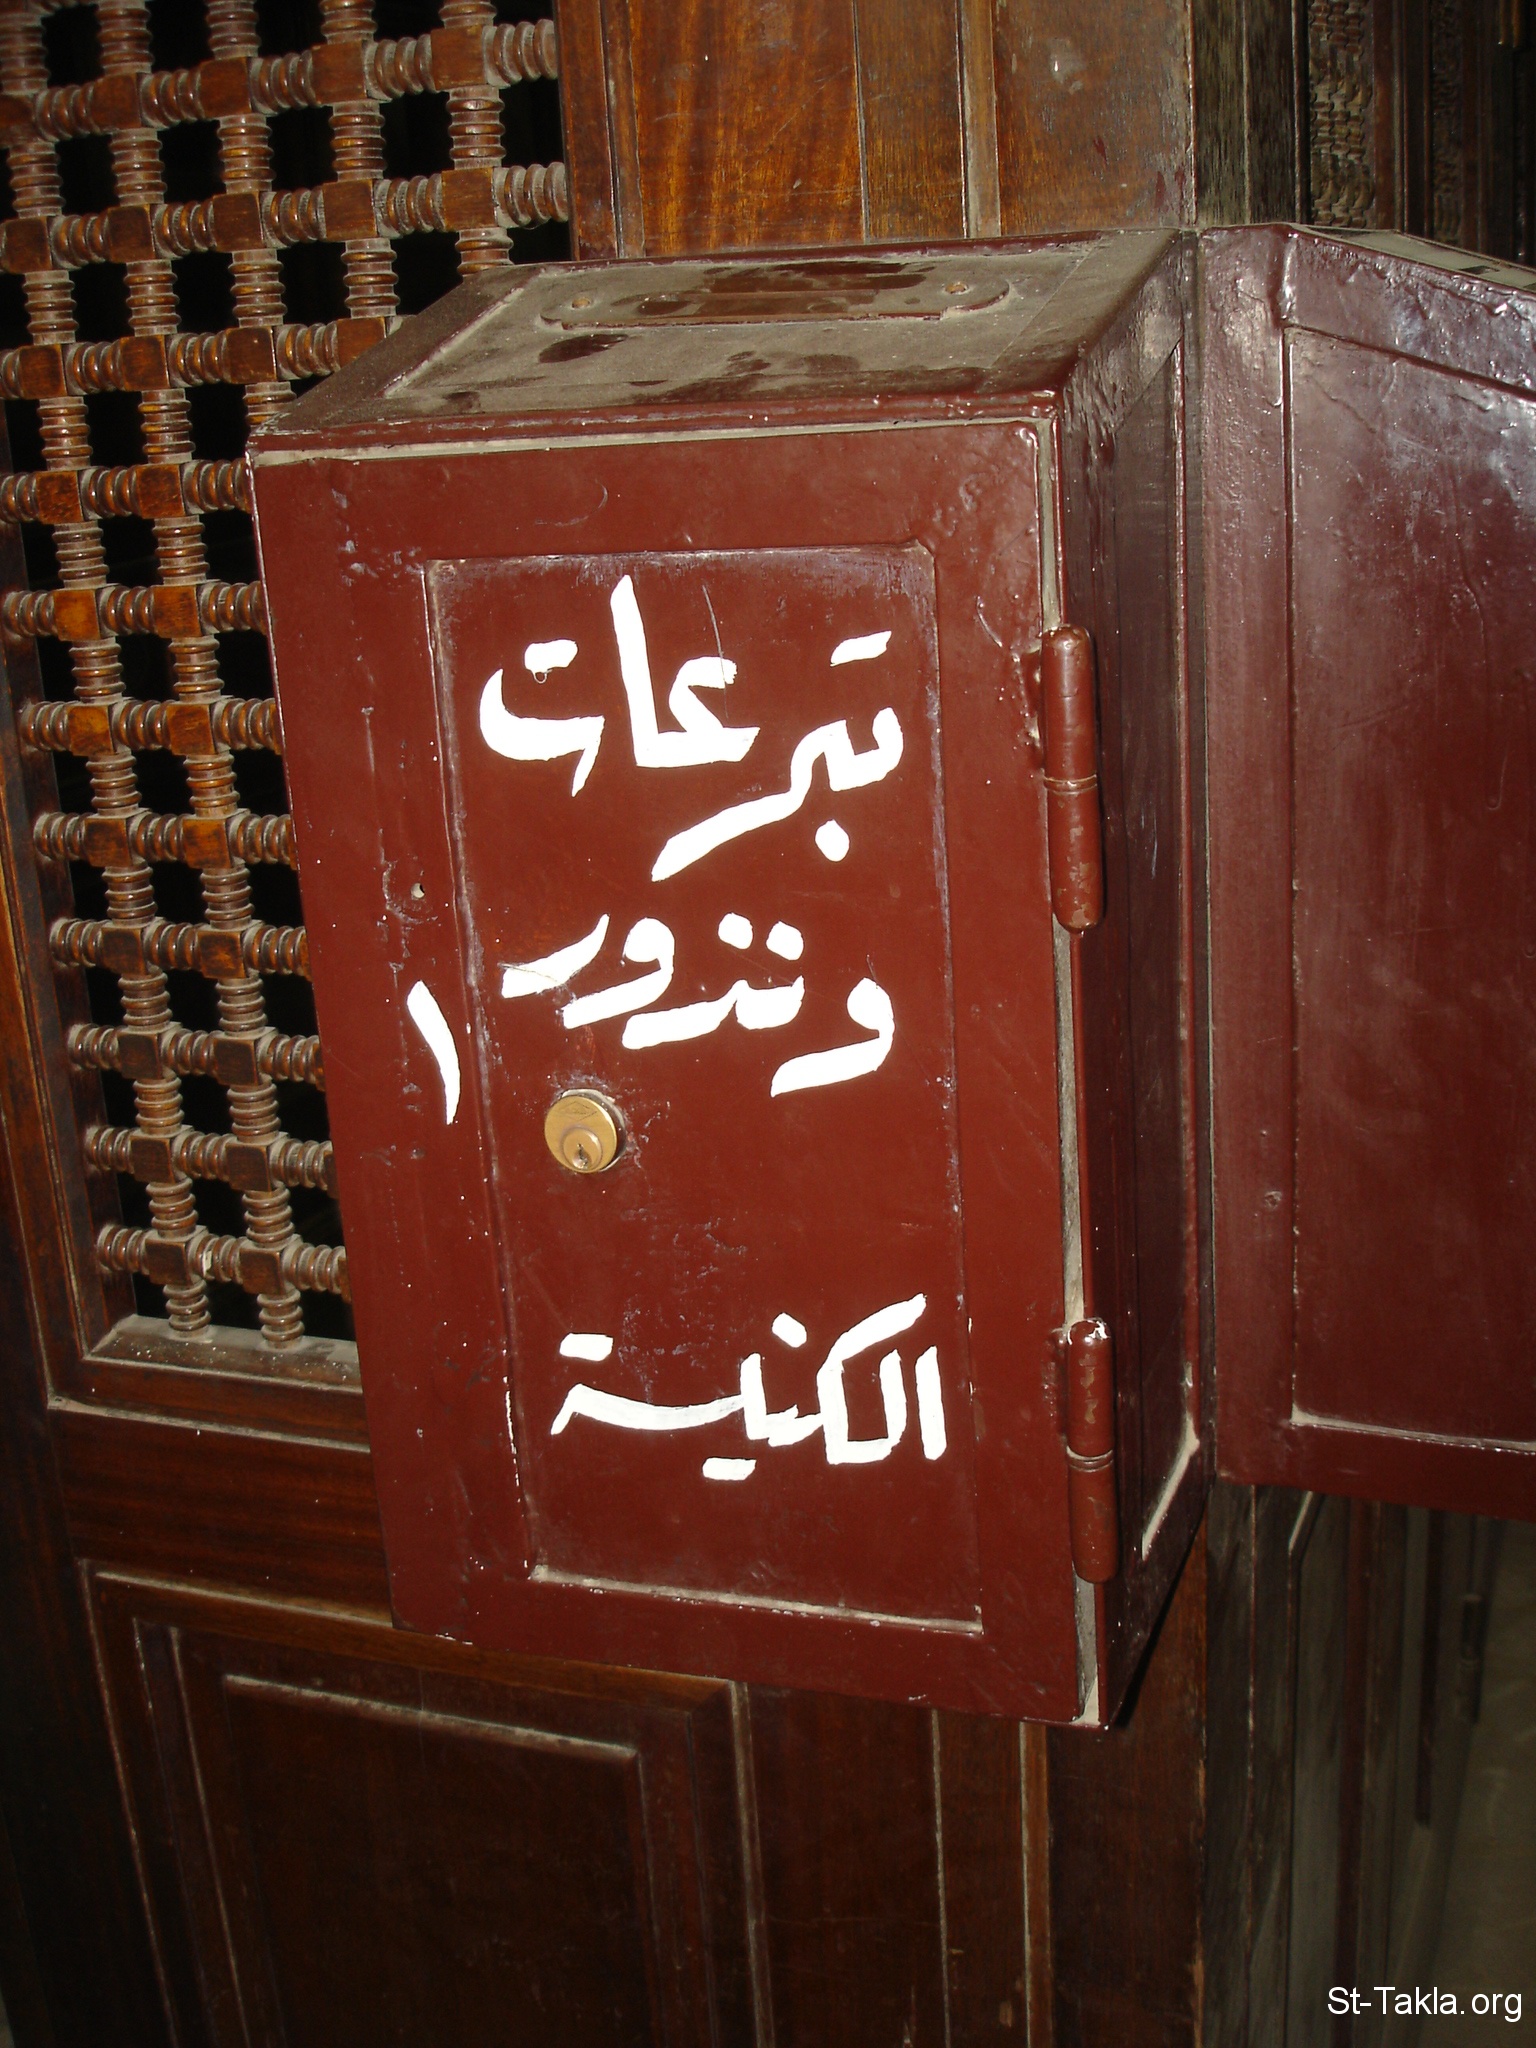 تبرعات
ونذور
١
الكنيسة
St-Takla.org